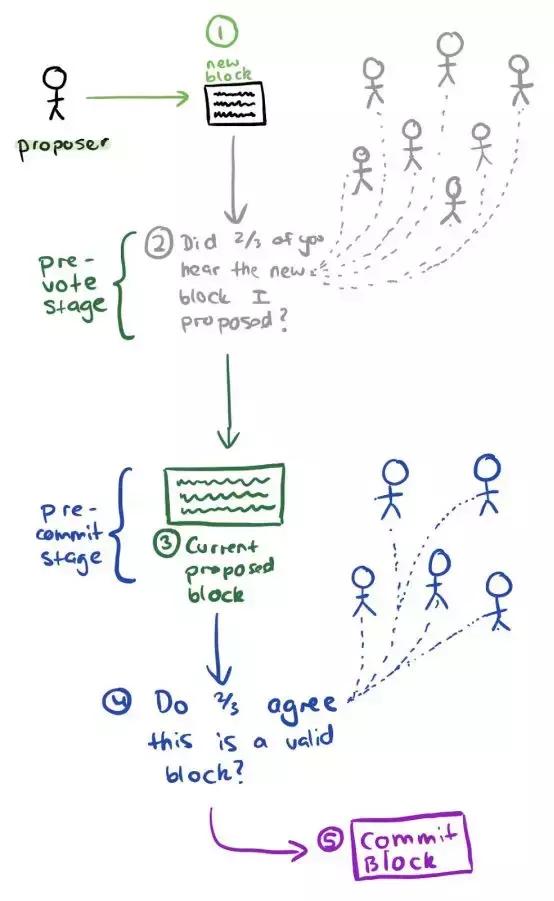 1
new
block
proposer
pre-
vote
stage
2 Did 2/3 of you
hear the new
block I
proposed?
pre-
commit
stage
3 Current
proposed
block
4 Do 2/3 agree
this is a valid
block?
5 Commit
Block